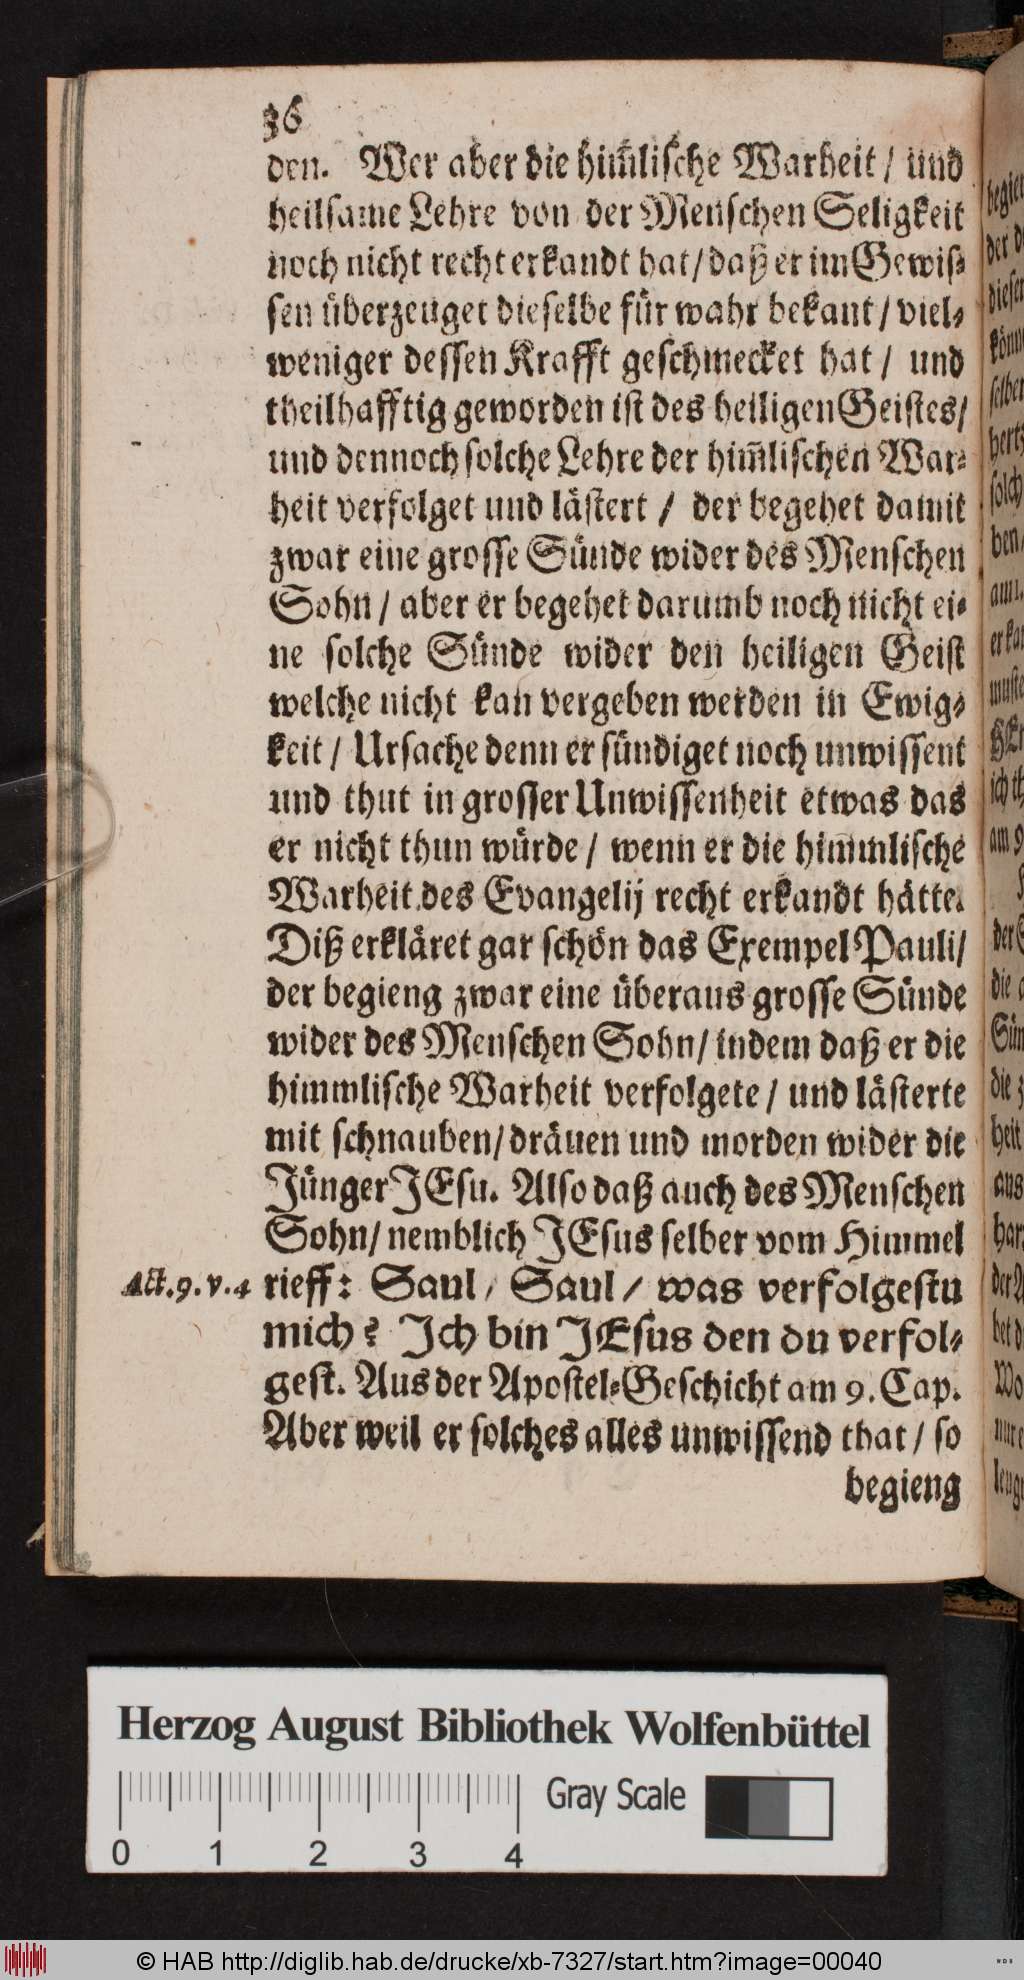 36
den. Wer aber die him̃lische Warheit / und
heilsame Lehre von der Menschen Seligkeit
noch nicht recht erkandt hat / daß er im Gewis-
sen überzeuget dieselbe für wahr bekant / viel-
weniger dessen Krafft geschmecket hat / und
theilhafftig geworden ist des heiligen Geistes /
und dennoch solche Lehre der him̃lischen War-
heit verfolget und lästert / der begehet damit
zwar eine grosse Sünde wider des Menschen
Sohn / aber er begehet darumb noch nicht ei-
ne solche Sünde wider den heiligen Geist
welche nicht kan vergeben werden in Ewig-
keit / Ursache denn er sündiget noch unwissent
und thut in grosser Unwissenheit etwas das
er nicht thun würde / wenn er die himmlische
Warheit des Evangelij recht erkandt hätte.
Diß erkläret gar schön das Exempel Pauli /
der begieng zwar eine überaus grosse Sünde
wider des Menschen Sohn / indem daß er die
himmlische Warheit verfolgete / und lästerte
mit schnauben / dräuen und morden wider die
Jünger JEsu. Also daß auch des Menschen
Sohn / nemblich JEsus selber vom Himmel
Act. 9. v. 4 rieff: Saul / Saul / was verfolgestu
mich? Ich bin JEsus den du verfol-
gest. Aus der Apostel-Geschicht am 9. Cap.
Aber weil er solches alles unwissend that / so
begieng
Herzog August Bibliothek Wolfenbüttel
Gray Scale
0 1 2 3 4
© HAB http://diglib.hab.de/drucke/xb-7327/start.htm?image=00040